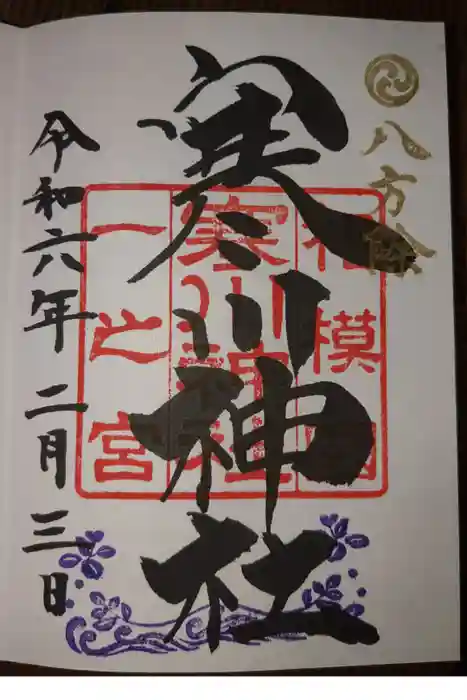 八方除
寒川神社
相模國
寒川神社
一之宮
令和六年二月三日